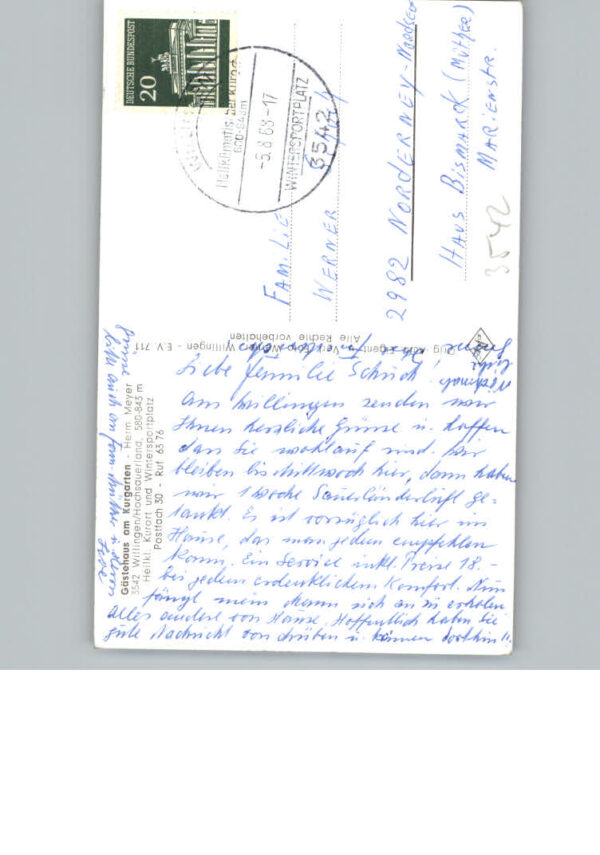 DEUTSCHE BUNDESPOST
20
Heilklimatischer Kurort
600-843m
-5.8.68-17
WINTERSPORTPLATZ
3542
FAMILIE
WERNER
2982 NORDERNEY-Nordsee
HAUS BISMARCK (MÜTHER)
MARIENSTR.
3542
Alle Rechte vorbehalten
Willingen - E.V. 711
Gästehaus am Kurgarten - Herm. Meyer
3542 Willingen/Hochsauerland, 580-843 m
Heilkl. Kurort und Wintersportplatz
Postfach 30 - Ruf 6376
Liebe Familie
Aus Willingen senden wir
Ihnen herzliche Grüsse u. hoffen
dass Sie wohlauf sind. Wir
bleiben bis Mittwoch hier, dann haben
wir 1 Woche Sauerländerluft ge-
tankt. Es ist vorzüglich hier im
Hause, das man jedem empfehlen
kann. Ein Service inkl. Preise 18.-
bei jedem erdenklichem Komfort. Nun
fängt mein Mann sich an zu erholen
alles andere von Hause. Hoffentlich haben Sie
gute Nachricht von drüben u. können dorthin!!